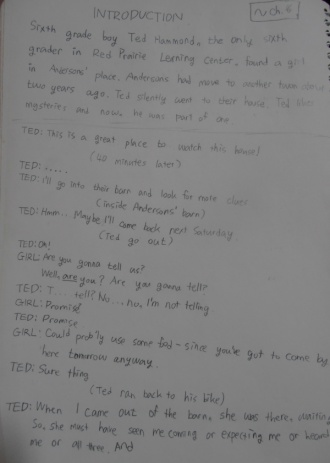 INTRODUCTION
Ch. 6
Sixth grade boy Ted Hammond, the only sixth
grader in Red Prairie Learning Center, found a girl
in Andersons' place. Andersons had move to another town about
two years ago. Ted silently went to their house. Ted likes
mysteries and now, he was part of one.
TED: This is a great place to watch this house!
(20 minutes later)
TED: .....
TED: I'll go into their barn and look for more clues
(inside Andersons' barn)
TED: Hmm.. Maybe I'll came back next Saturday
(Ted go out)
TED: Oh!
GIRL: Are you gonna tell us?
Well, are you? Are you gonna tell?
TED: T... tell? No... no, I'm not telling
GIRL: Promise?
TED: Promise
GIRL: Could prob'ly use some food - since you've got to come by
here tomorrow anyway.
TED: Sure thing
(Ted ran back to his bike)
TED: When I came out of the barn, she was there, waiting
So, she must have seen me coming or expecting me or heard
me or all three. And